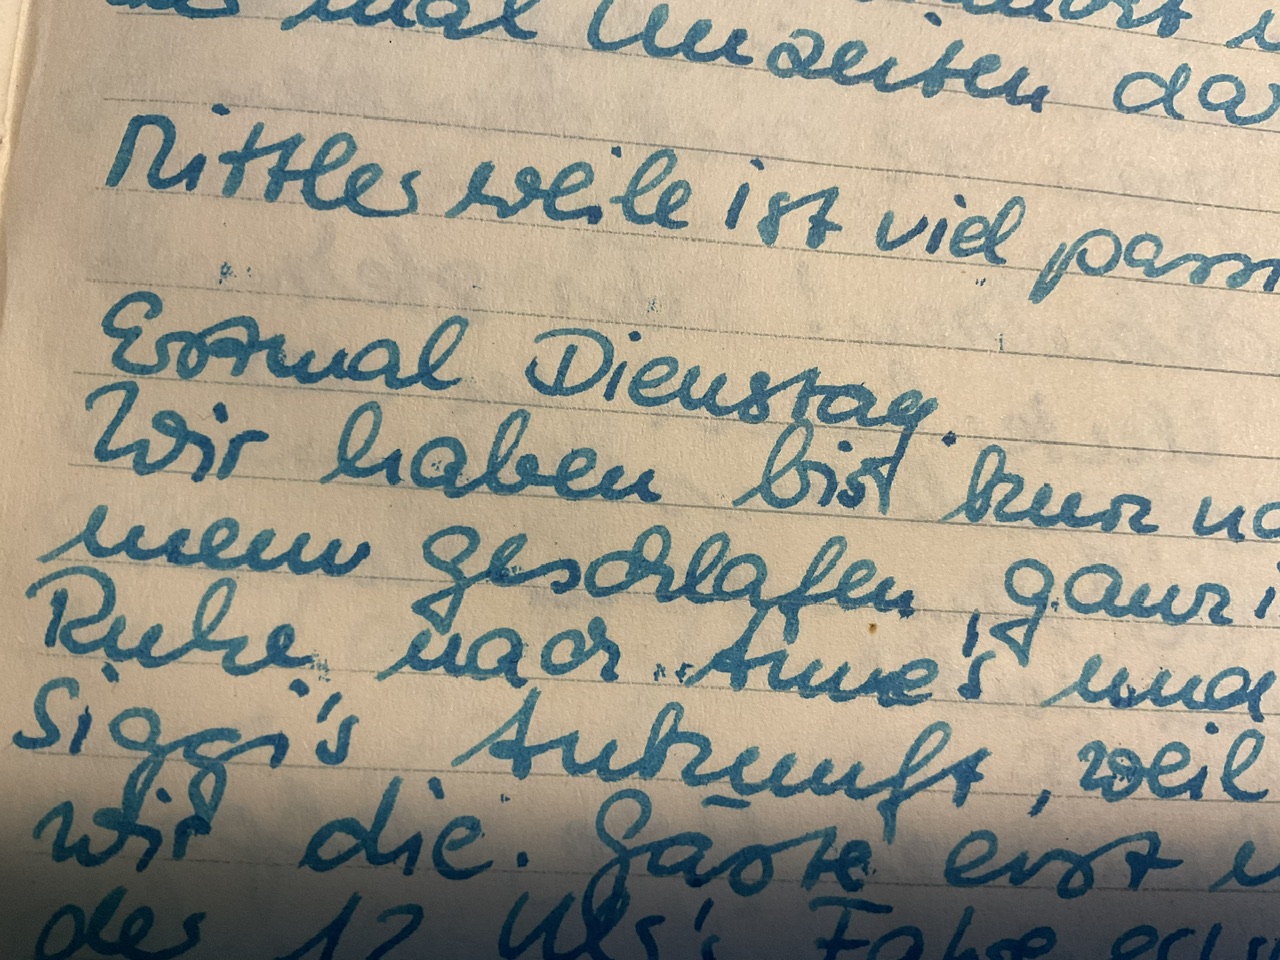 mal Unzeiten da
Mittlerweile ist viel pass
Erstmal Dienstag.
Wir haben bis kurz
geschlafen, ganz i
Ruhe nach Anne's und
Siggi's Ankunft, weil
wir die Gäste erst
der 12 Uhr's Fähre